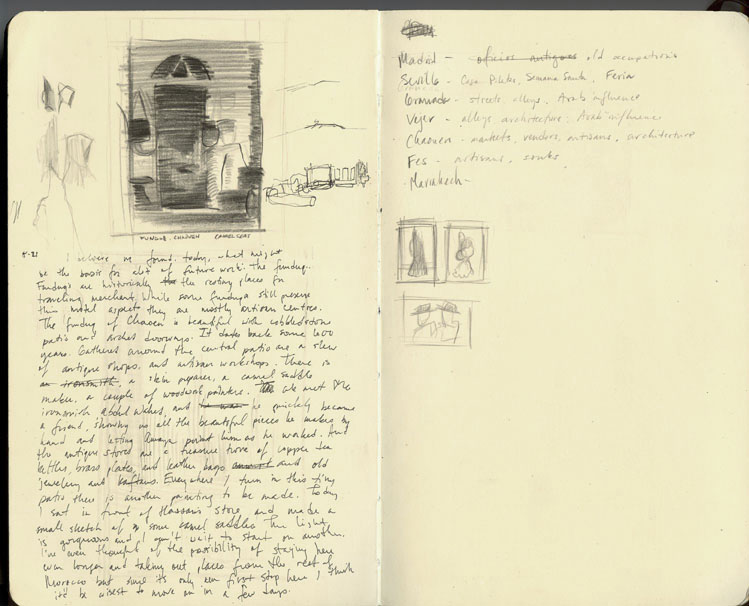 FUNDUQ. CHAOUEN CAMEL SEAT
5-21
I believe we found, today, what might
be the basis for alot of future work: The funduq.
Funduqs are historically the resting places for
traveling merchants. While some funduqs still preserve
this motel aspect they are mostly artisan centres.
The funduq of Chaouen is beautiful with cobblestone
patio and arched doorways. It dates back some 600
years. Gathered around the central patio are a slew
of antique shops, and artisan workshops. There is
an ironsmith, a skin preparer, a camel saddle
maker, a couple of woodwork painters. We met the
ironsmith Abdul Wahed, and he quickly became
a friend, showing us all the beautiful pieces he makes by
hand and letting paint him as he worked. And
the antique stores are a treasure trove of copper tea
kettles, brass plates, and leather bags and old
jewelery and kaftans. Everywhere I turn in this tiny
patio there is another painting to be made. Today
I sat in front of Hassan's store and made a
small sketch of some camel saddles. The light
is gorgeous and I can't wait to start on another.
I've even thought of the possibility of staying here
even longer and taking out places from the rest of
Morocco but since its only our first stop here I think
it'd be wisest to move on in a few days.
Madrid - oficios antiguos old occupations
Sevilla - Casa Pilatos, Semana Santa, Feria
Granada - streets, alleys, Arab influence
Vejer - alleys architecture, Arab influence
Chaouen - markets, vendors, artisans, architecture
Fes - artisans, souks
-Marrakech-